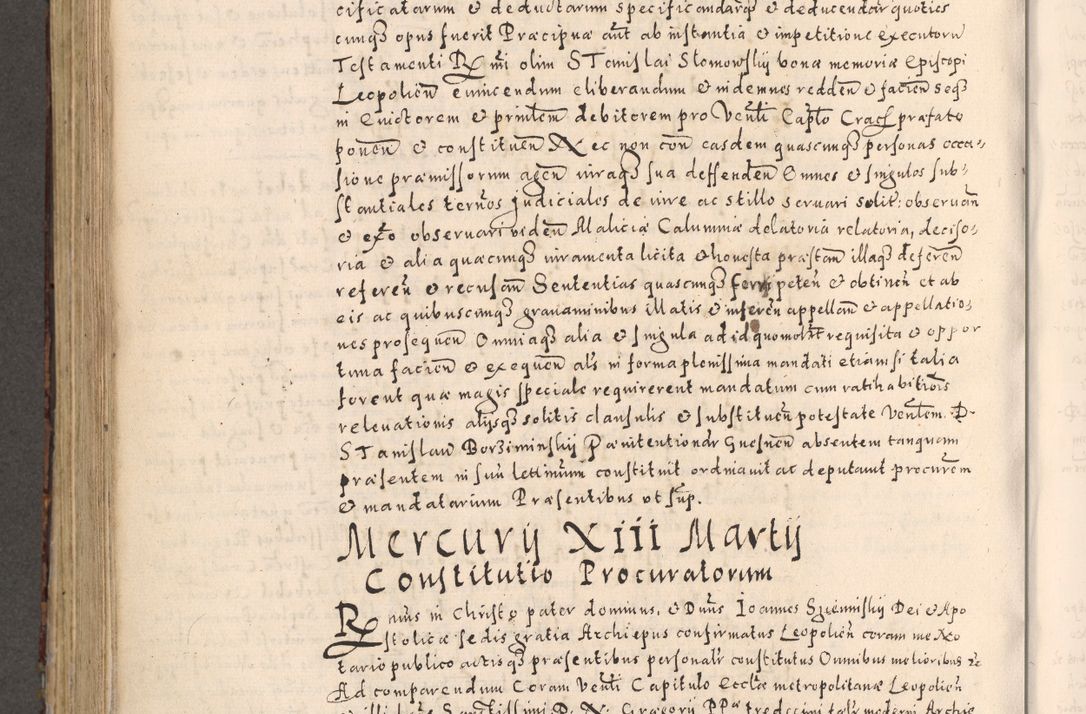 cificatarum & deductarum specificandarq3 & deducendar quoties
cunq3 opus fuerit Præcipuæ aut ab instantia & impetitione executorū
Testamenti Rmi olim STanislai Slomowskij bonæ memoriæ Episcopi
Leopolien̄ euincendum eliberandum & indemnes redden̄ & facien̄ seq3
in euictorem & prinlem̄ debitorem pro Venli Caplo Crac̄ præfato
ponen̄ & constituen̄ Nec non con̄ easdem quascunq3 personas occa-
sione præmissorum agen̄ iuraq3 sua deffenden̄ Omnes & singulos sub-
stantiales termos judiciales de iure ac stillo seruari solit: obseruan̄
& ex̄o obseruari viden̄ Maliciæ Calumniæ delatoria relatoria, deciso-
ria & alia quæcunq3 iuramenta licita & honesta præstan̄ illaq3 deferen̄
referen̄ & recusan̄ Sententias quascunq3 ferri peten̄ & obtinen̄ et ab
eis ac quibuscunq3 grauaminibus illatis & inferen̄ appellan̄ & appellatio-
nes prosequen̄ Omniaq3 alia & singula ad id quomolt requisita & oppor
tuna facien̄ & exequen̄ als in forma plenissima mandati etiam si talia
forent quæ magis speciale requirerent mandatum cum ratihabitiois
releuationis alijsq3 solitis clausulis & substituen̄ potestate Venlem. D.
STanislaū Borziminskij Pænitentionar Gnesnen̄ absentem tanquam
præsentem in suū letimum̄ constituit ordinauit ac deputauit procurem
& mandatarium Præsentibus ut sup.
Mercurij XIII Martij
Constitutio Procuratorum
Rmūs in Christo pater dominus, & Dnūs Ioannes Szieninskij Dei & Apo
stolicæ sedis gratia Archiepus confirmatus Leopolien̄ coram me No
tario publico actisq3 præsentibus personalr constitutus Omnibus melioribus &c
Ad comparendum Coram Venli Capitulo Ecclæ metropolitanæ Leopolien̄